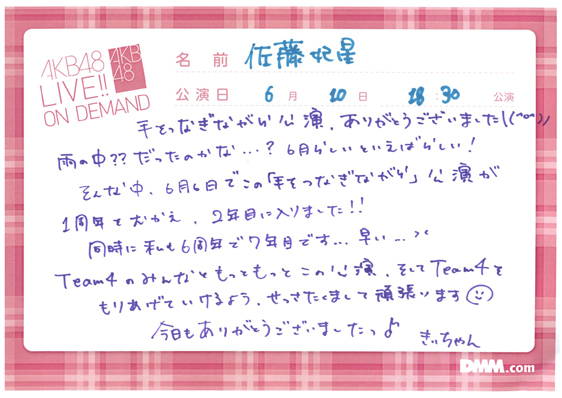 AKB48
LIVE!!
ON DEMAND
AKB
48
名前 佐藤妃星
公演日 6月10日 18:30 公演
手をつなぎながら公演、ありがとうございました\(^o^)/
雨の中??だったのかな…?6月らしいといえばらしい!
そんな中、6月6日でこの「手をつなぎながら」公演が
1周年をむかえ、2年目に入りました!!
同時に私も6周年で7年目です…早い…><
Team4のみんなともっともっとこの公演、そしてTeam4を
もりあげていけるよう、せっさたくまして頑張ります
今日もありがとうございましたっ♪
きぃちゃん
DMM.com